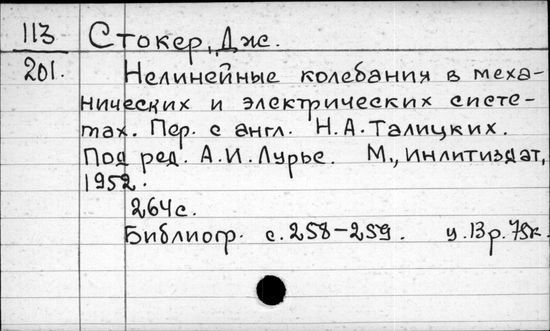 113 Стокер, Дж.
201. Нелинейные колебания в меха-
нических и электрических систе-
мах. Пер. с англ. Н.А.Талицких.
Под ред. А.И.Лурье. М., Инлитиздат,
1952.
264с.
Библиогр. с.258-259. ц.13р.75к.